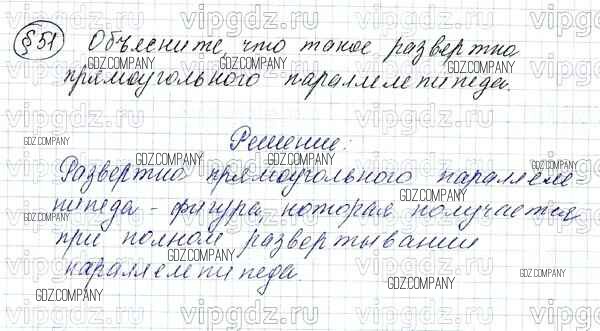 § 51 Объясните, что такое развертка
прямоугольного параллелепипеда.
Решение:
Развертка прямоугольного паралле
пипеда - фигура, которая получается
при полном развертывании
параллелепипеда.
vipgdz.ru
GDZ.COMPANY